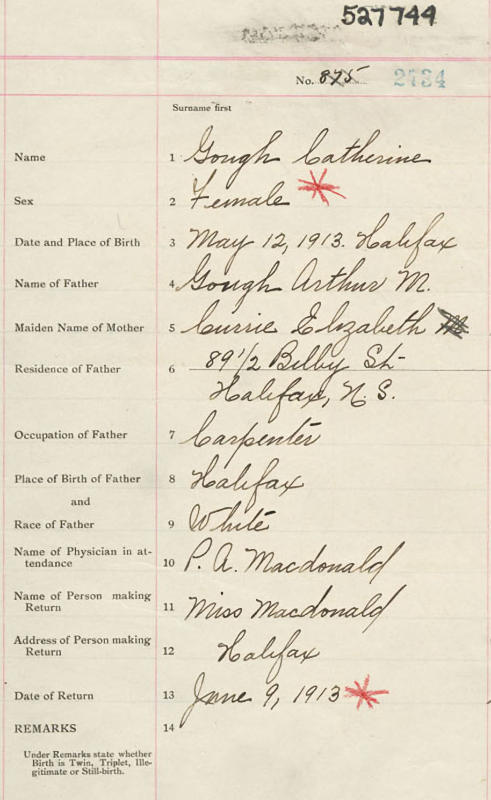 527744
No. 875 2734
Surname first
Name 1 Gough Catherine
Sex 2 Female
Date and Place of Birth 3 May 12, 1913. Halifax
Name of Father 4 Gough Arthur M.
Maiden Name of Mother 5 Currie Elizabeth
Residence of Father 6 89 1/2 Bilby St
Halifax, N. S.
Occupation of Father 7 Carpenter
Place of Birth of Father 8 Halifax
and
Race of Father 9 White
Name of Physician in at-
tendance 10 P. A. Macdonald
Name of Person making
Return 11 Miss Macdonald
Address of Person making
Return 12 Halifax
Date of Return 13 June 9, 1913
REMARKS 14
Under Remarks state whether
Birth is Twin, Triplet, Ille-
gitimate or Still-birth.